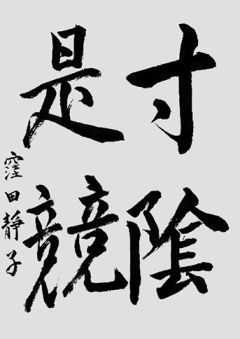 寸陰
是競
窪田静子